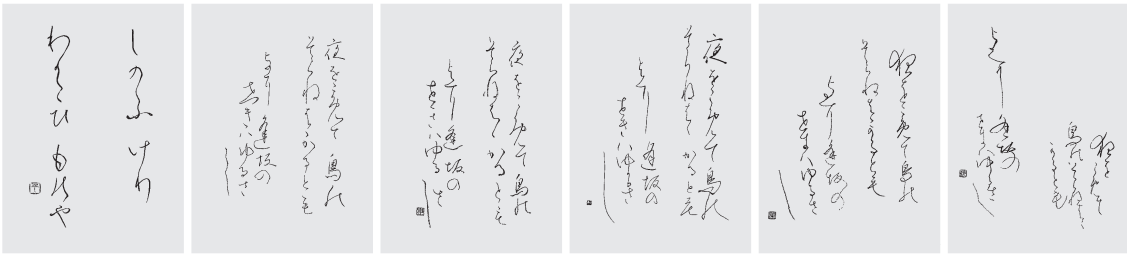 しのふ けり
ものや
夜をこめて 鳥の
そらねはかるとも
よに 逢坂の
せきはゆるさ
し
夜をこめて 鳥の
そらねは かるとも
よに 逢坂の
せきはゆるさ
し
夜をこめて鳥の
そらねは かるとも
よに 逢坂の
せきはゆるさ
し
夜をこめて鳥の
そらねはかるとも
よに逢坂の
せきはゆるさ
し
夜を
こめて
鳥のそらねは
かるとも
よに 逢坂の
せきはゆるさ
し